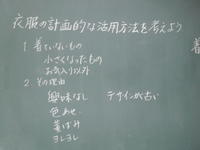 衣服の計画的な活用方法を考えよう
1 着ていないもの
小さくなったもの
お気に入り以外
2 その理由
興味なし デザインが古い
色あせ
黄ばみ
ヨレヨレ
着